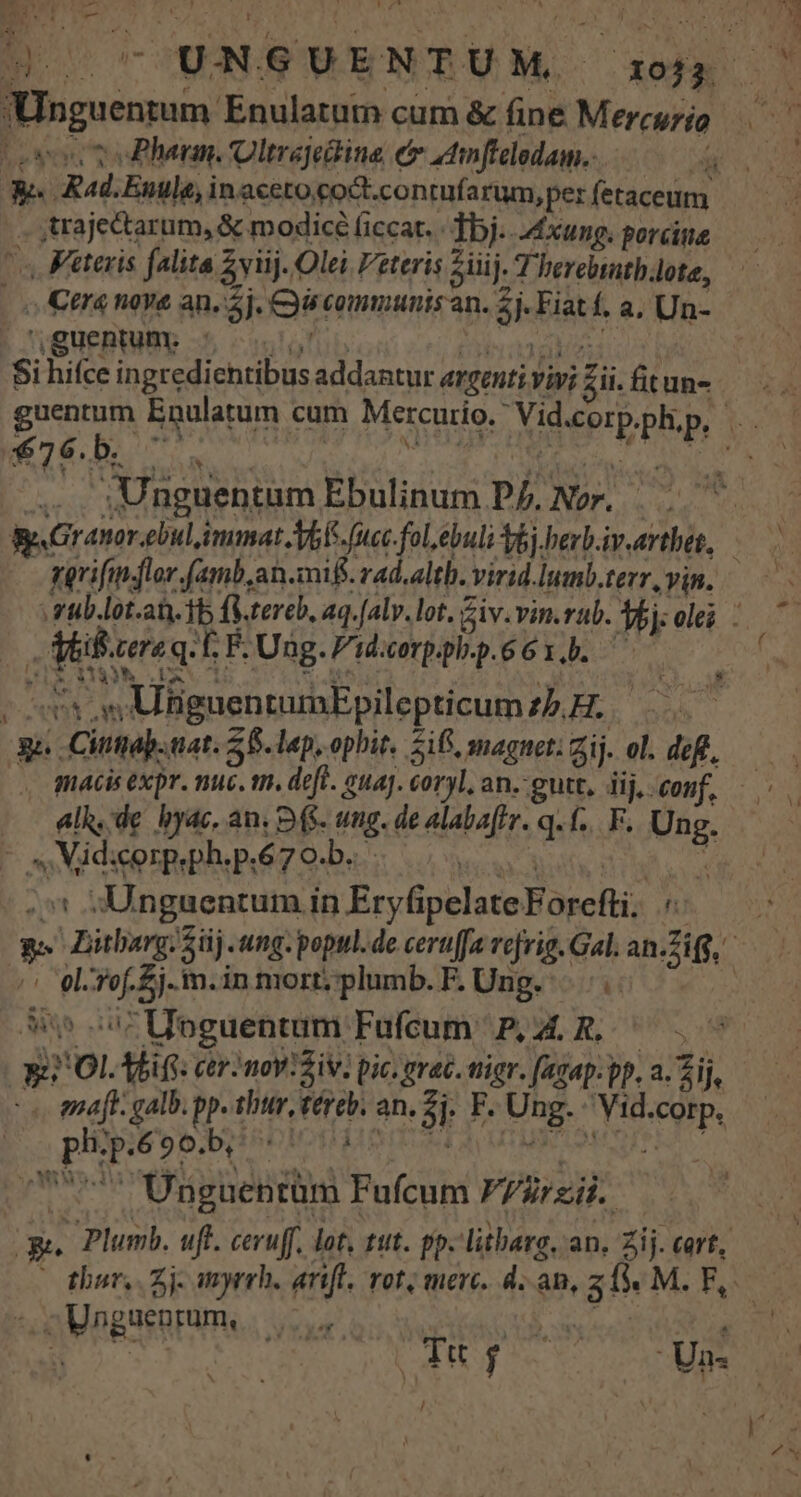 UNGUENTUM. 1033
Unguentum Enulatum cum & ſine Mercurio
Pharm. Ultrajectina & Amſtelodam.
℞. Rad. Enulæ, in aceto, coct. contuſarum, per ſetaceum
trajectarum, & modicè ſiccat. ℔j. Axung. porcinæ
Veteris ſalitæ ℥viij. Olei Veteris ℥iiij. Therebinth. lotæ,
Ceræ novæ an. ℥j. Salis communis an. ℥j. Fiat ſ. a. Un-
guentum.
Si hiſce ingredientibus addantur argenti vivi ℥ii. fit un-
guentum Enulatum cum Mercurio. Vid. corp. ph. p.
676. b.
Unguentum Ebulinum Ph. Nor.
℞. Granor. ebul. immat. ℔ß. ſucc. fol. ebuli ℔j. herb. iv. arthet.
roriſm. flor. ſamb. an. miß. rad. alth. virid. lumb. terr. vin.
rub. lot. an. ℔ ß. tereb. aq. ſalv. lot. ℥iv. vin. rub. ℔j. olei
℔iß. ceræ q. ſ. F. Ung. Vid. corp. ph. p. 661. b.
Unguentum Epilepticum th. H.
℞. Cinnab. nat. ℥ß. lap. ophit. ℥iß, magnet. ℥ij. ol. deſt.
macis expr. nuc. m. deſt. guaj. coryl. an. gutt. iij. conf.
alk. de hyac. an. ℈ß. ung. de alabaſtr. q. ſ. F. Ung.
Vid. corp. ph. p. 670. b.
Unguentum in Eryſipelate Foreſti.
℞. Litharg. ℥iij. ung. popul. de ceruſſa refrig. Gal. an. ℥iß.
ol. roſ. ℥j. m. in mort. plumb. F. Ung.
Unguentum Fuſcum P. A. R.
℞. Ol. ℔iß. cer. nov. ℥iv. pic. græc. nigr. ſagap. pp. a. ℥ij.
maſt. galb. pp. thur. tereb. an. ℥j. F. Ung. Vid. corp.
ph. p. 690. b.
Unguentum Fuſcum Würzii.
℞. Plumb. uſt. ceruſſ. lot. tut. pp. litharg. an. ℥ij. cort.
thur. ℥j. myrrh. ariſt. rot. merc. d. an. ʒß. M. F.
Unguentum.
Ttt 5 Un-